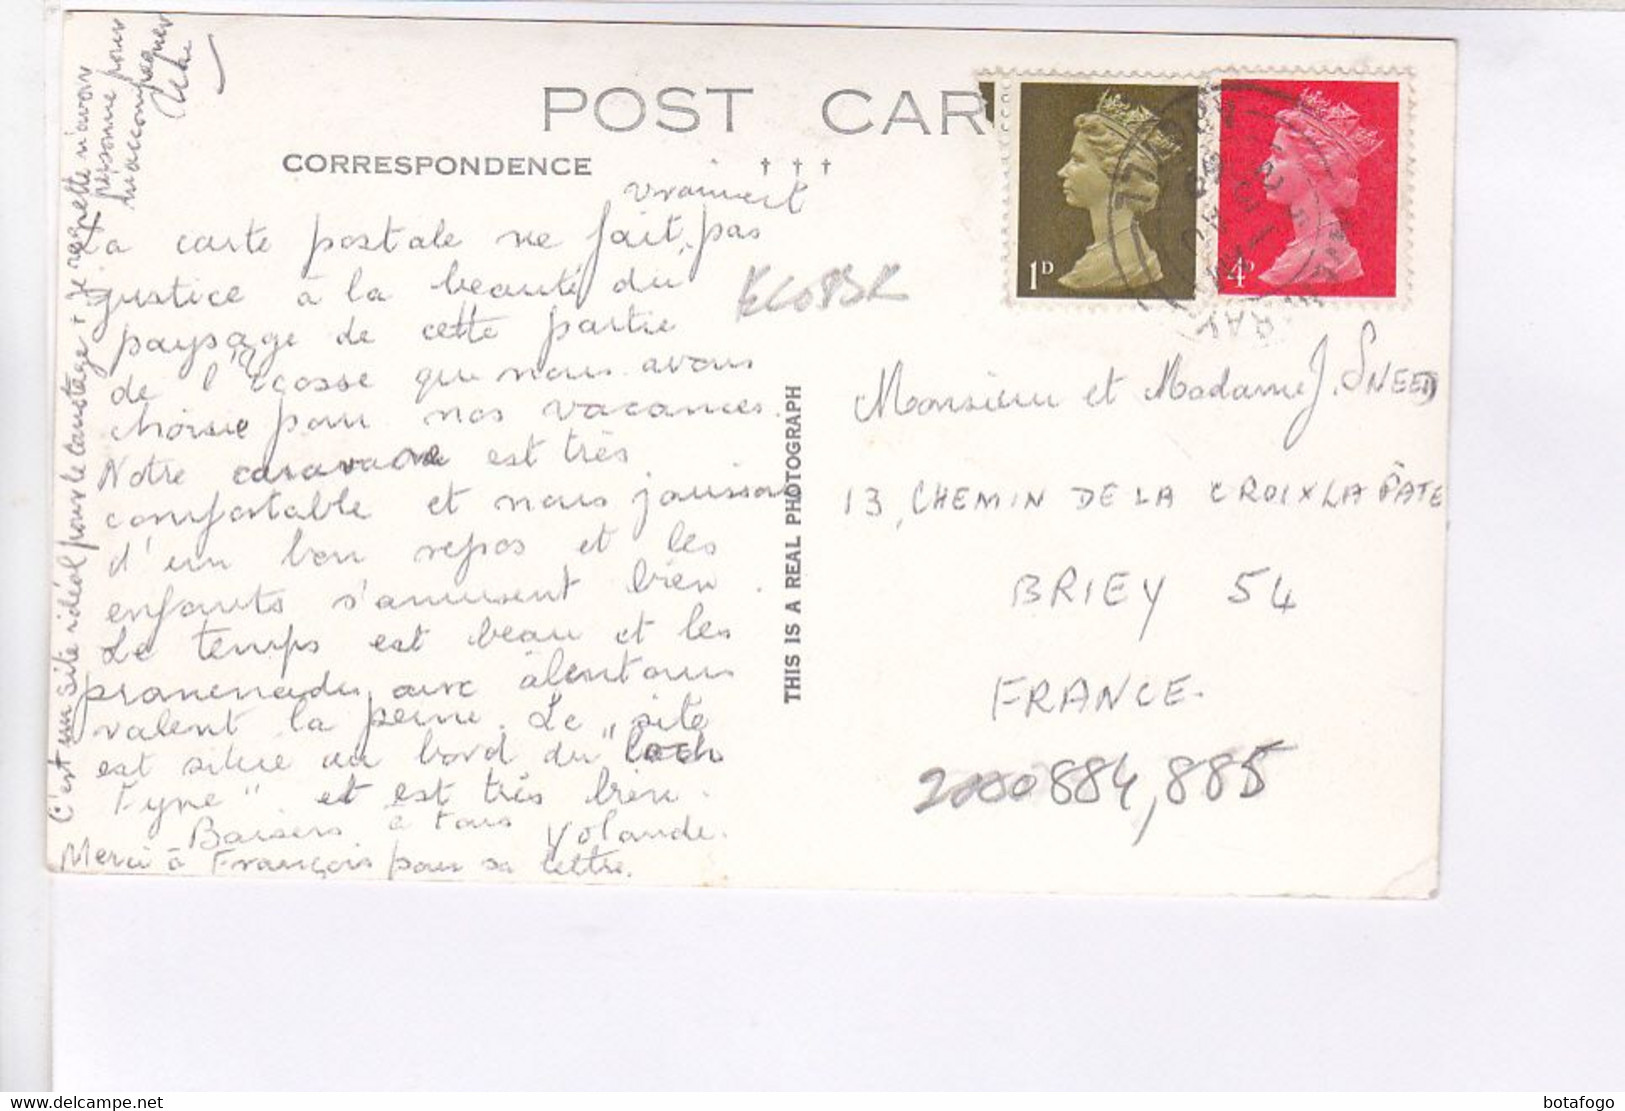 POST CAR
CORRESPONDENCE
† † †
vraiment
La carte postale ne fait pas
justice à la beauté du
paysage de cette partie
de l'Ecosse que nous avons
choisie pour nos vacances.
Notre caravane est très
confortable et nous jouissons
d'un bon repos et les
enfants s'amusent bien.
Le temps est beau et les
promenades avec alentours
valent la peine. Le "site
est situé au bord du "Loch
Fyne" et est très bien.
Baisers à tous Yolande.
Merci à François pour sa lettre.
C'est un site idéal pour le canotage + je regrette n'avoir
personne pour
m'accompagner
THIS IS A REAL PHOTOGRAPH
1D
4D
Monsieur et Madame J. SNEED
13, CHEMIN DE LA CROIX LA PATE
BRIEY 54
FRANCE.
2000884,885
botafogo